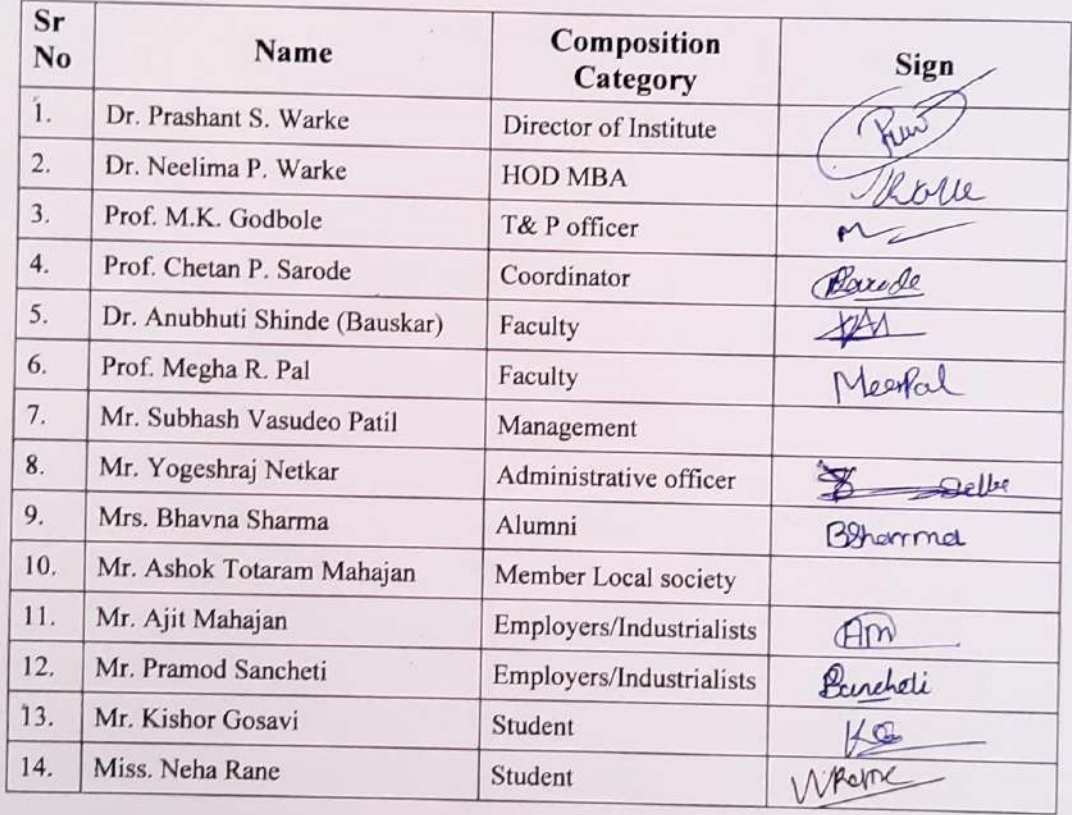 Sr No Name Composition Category Sign
1. Dr. Prashant S. Warke Director of Institute
2. Dr. Neelima P. Warke HOD MBA
3. Prof. M.K. Godbole T& P officer
4. Prof. Chetan P. Sarode Coordinator
5. Dr. Anubhuti Shinde (Bauskar) Faculty
6. Prof. Megha R. Pal Faculty
7. Mr. Subhash Vasudeo Patil Management
8. Mr. Yogeshraj Netkar Administrative officer
9. Mrs. Bhavna Sharma Alumni BSharma
10. Mr. Ashok Totaram Mahajan Member Local society
11. Mr. Ajit Mahajan Employers/Industrialists AM
12. Mr. Pramod Sancheti Employers/Industrialists Sancheti
13. Mr. Kishor Gosavi Student
14. Miss. Neha Rane Student